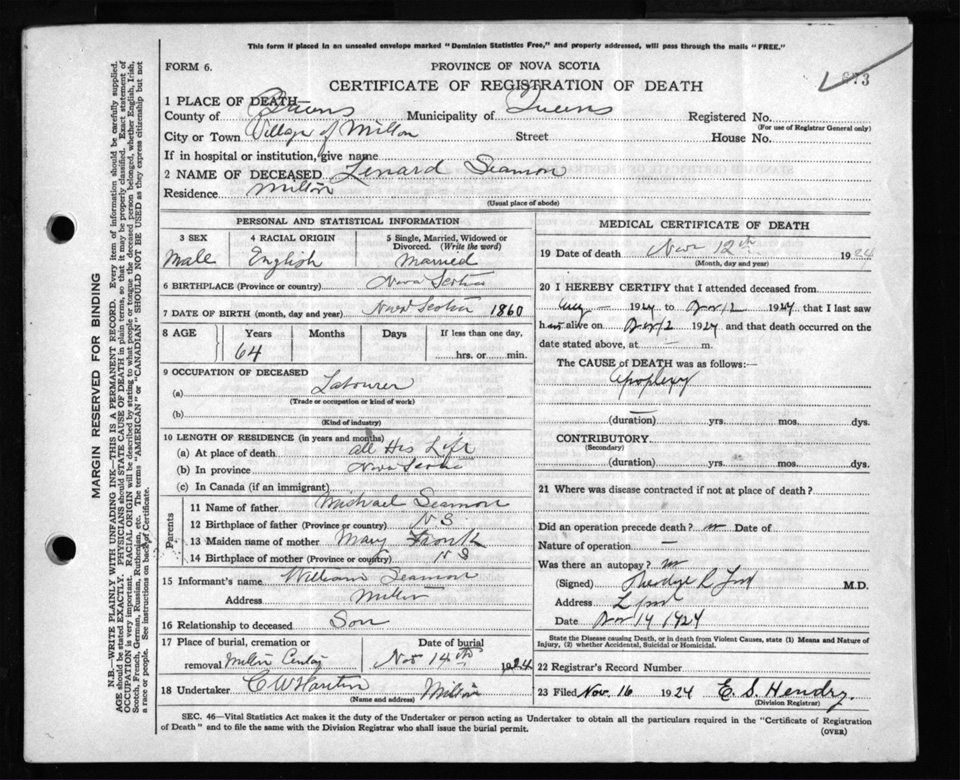 This form if placed in an unsealed envelope marked "Dominion Statistics Free," and properly addressed, will pass through the mails "FREE."
FORM 6.
PROVINCE OF NOVA SCOTIA
CERTIFICATE OF REGISTRATION OF DEATH
673
1 PLACE OF DEATH—
County of Queens Municipality of Queens Registered No.
(For use of Registrar General only)
City or Town Village of Milton Street House No.
If in hospital or institution, give name
2 NAME OF DECEASED Lenard Seamon
Residence Milton
(Usual place of abode)
PERSONAL AND STATISTICAL INFORMATION
3 SEX 4 RACIAL ORIGIN 5 Single, Married, Widowed or Divorced. (Write the word)
Male English Married
6 BIRTHPLACE (Province or country) Nova Scotia
7 DATE OF BIRTH (month, day and year) Nova Scotia 1860
8 AGE Years Months Days If less than one day,
64 hrs. or min.
9 OCCUPATION OF DECEASED
(a) Labourer
(Trade or occupation or kind of work)
(b)
(Kind of industry)
10 LENGTH OF RESIDENCE (in years and months)
(a) At place of death all His Life
(b) In province Nova Scotia
(c) In Canada (if an immigrant)
Parents
11 Name of father Michael Seamon
12 Birthplace of father (Province or country) N S
13 Maiden name of mother Mary
14 Birthplace of mother (Province or country) N S
15 Informant's name William Seamon
Address Milton
16 Relationship to deceased Son
17 Place of burial, cremation or removal Milton Date of burial Nov 14th 1924
18 Undertaker C W Milton
(Name and address)
MEDICAL CERTIFICATE OF DEATH
19 Date of death Nov 12th 1924
(Month, day and year)
20 I HEREBY CERTIFY that I attended deceased from
1924 to Nov 12 1924 that I last saw
h alive on Nov 12 1924 and that death occurred on the
date stated above, at — m.
The CAUSE of DEATH was as follows:—
Apoplexy
(duration) yrs. mos. dys.
CONTRIBUTORY
(Secondary)
(duration) yrs. mos. dys.
21 Where was disease contracted if not at place of death?
Did an operation precede death? no Date of
Nature of operation —
Was there an autopsy? no
(Signed) M.D.
Address
Date Nov 14 1924
State the Disease causing Death, or in death from Violent Causes, state (1) Means and Nature of
Injury, (2) whether Accidental, Suicidal or Homicidal.
22 Registrar's Record Number
23 Filed Nov. 16 1924 E. S. Hendry
(Division Registrar)
SEC. 46—Vital Statistics Act makes it the duty of the Undertaker or person acting as Undertaker to obtain all the particulars required in the "Certificate of Registration
of Death" and to file the same with the Division Registrar who shall issue the burial permit.
(OVER)
MARGIN RESERVED FOR BINDING
N.B.—WRITE PLAINLY WITH UNFADING INK—THIS IS A PERMANENT RECORD. Every item of information should be carefully supplied.
AGE should be stated EXACTLY. PHYSICIANS should STATE CAUSE OF DEATH in plain terms, so that it may be properly classified. Exact statement of
OCCUPATION is very important. RACIAL ORIGIN will be described by stating to what people or tongue the deceased person belonged, whether English, Irish,
Scotch, French, German, Russian, Ruthenian, etc. The terms "AMERICAN" or "CANADIAN" SHOULD NOT BE USED as they express citizenship but not
a race or people. See instructions on back of Certificate.